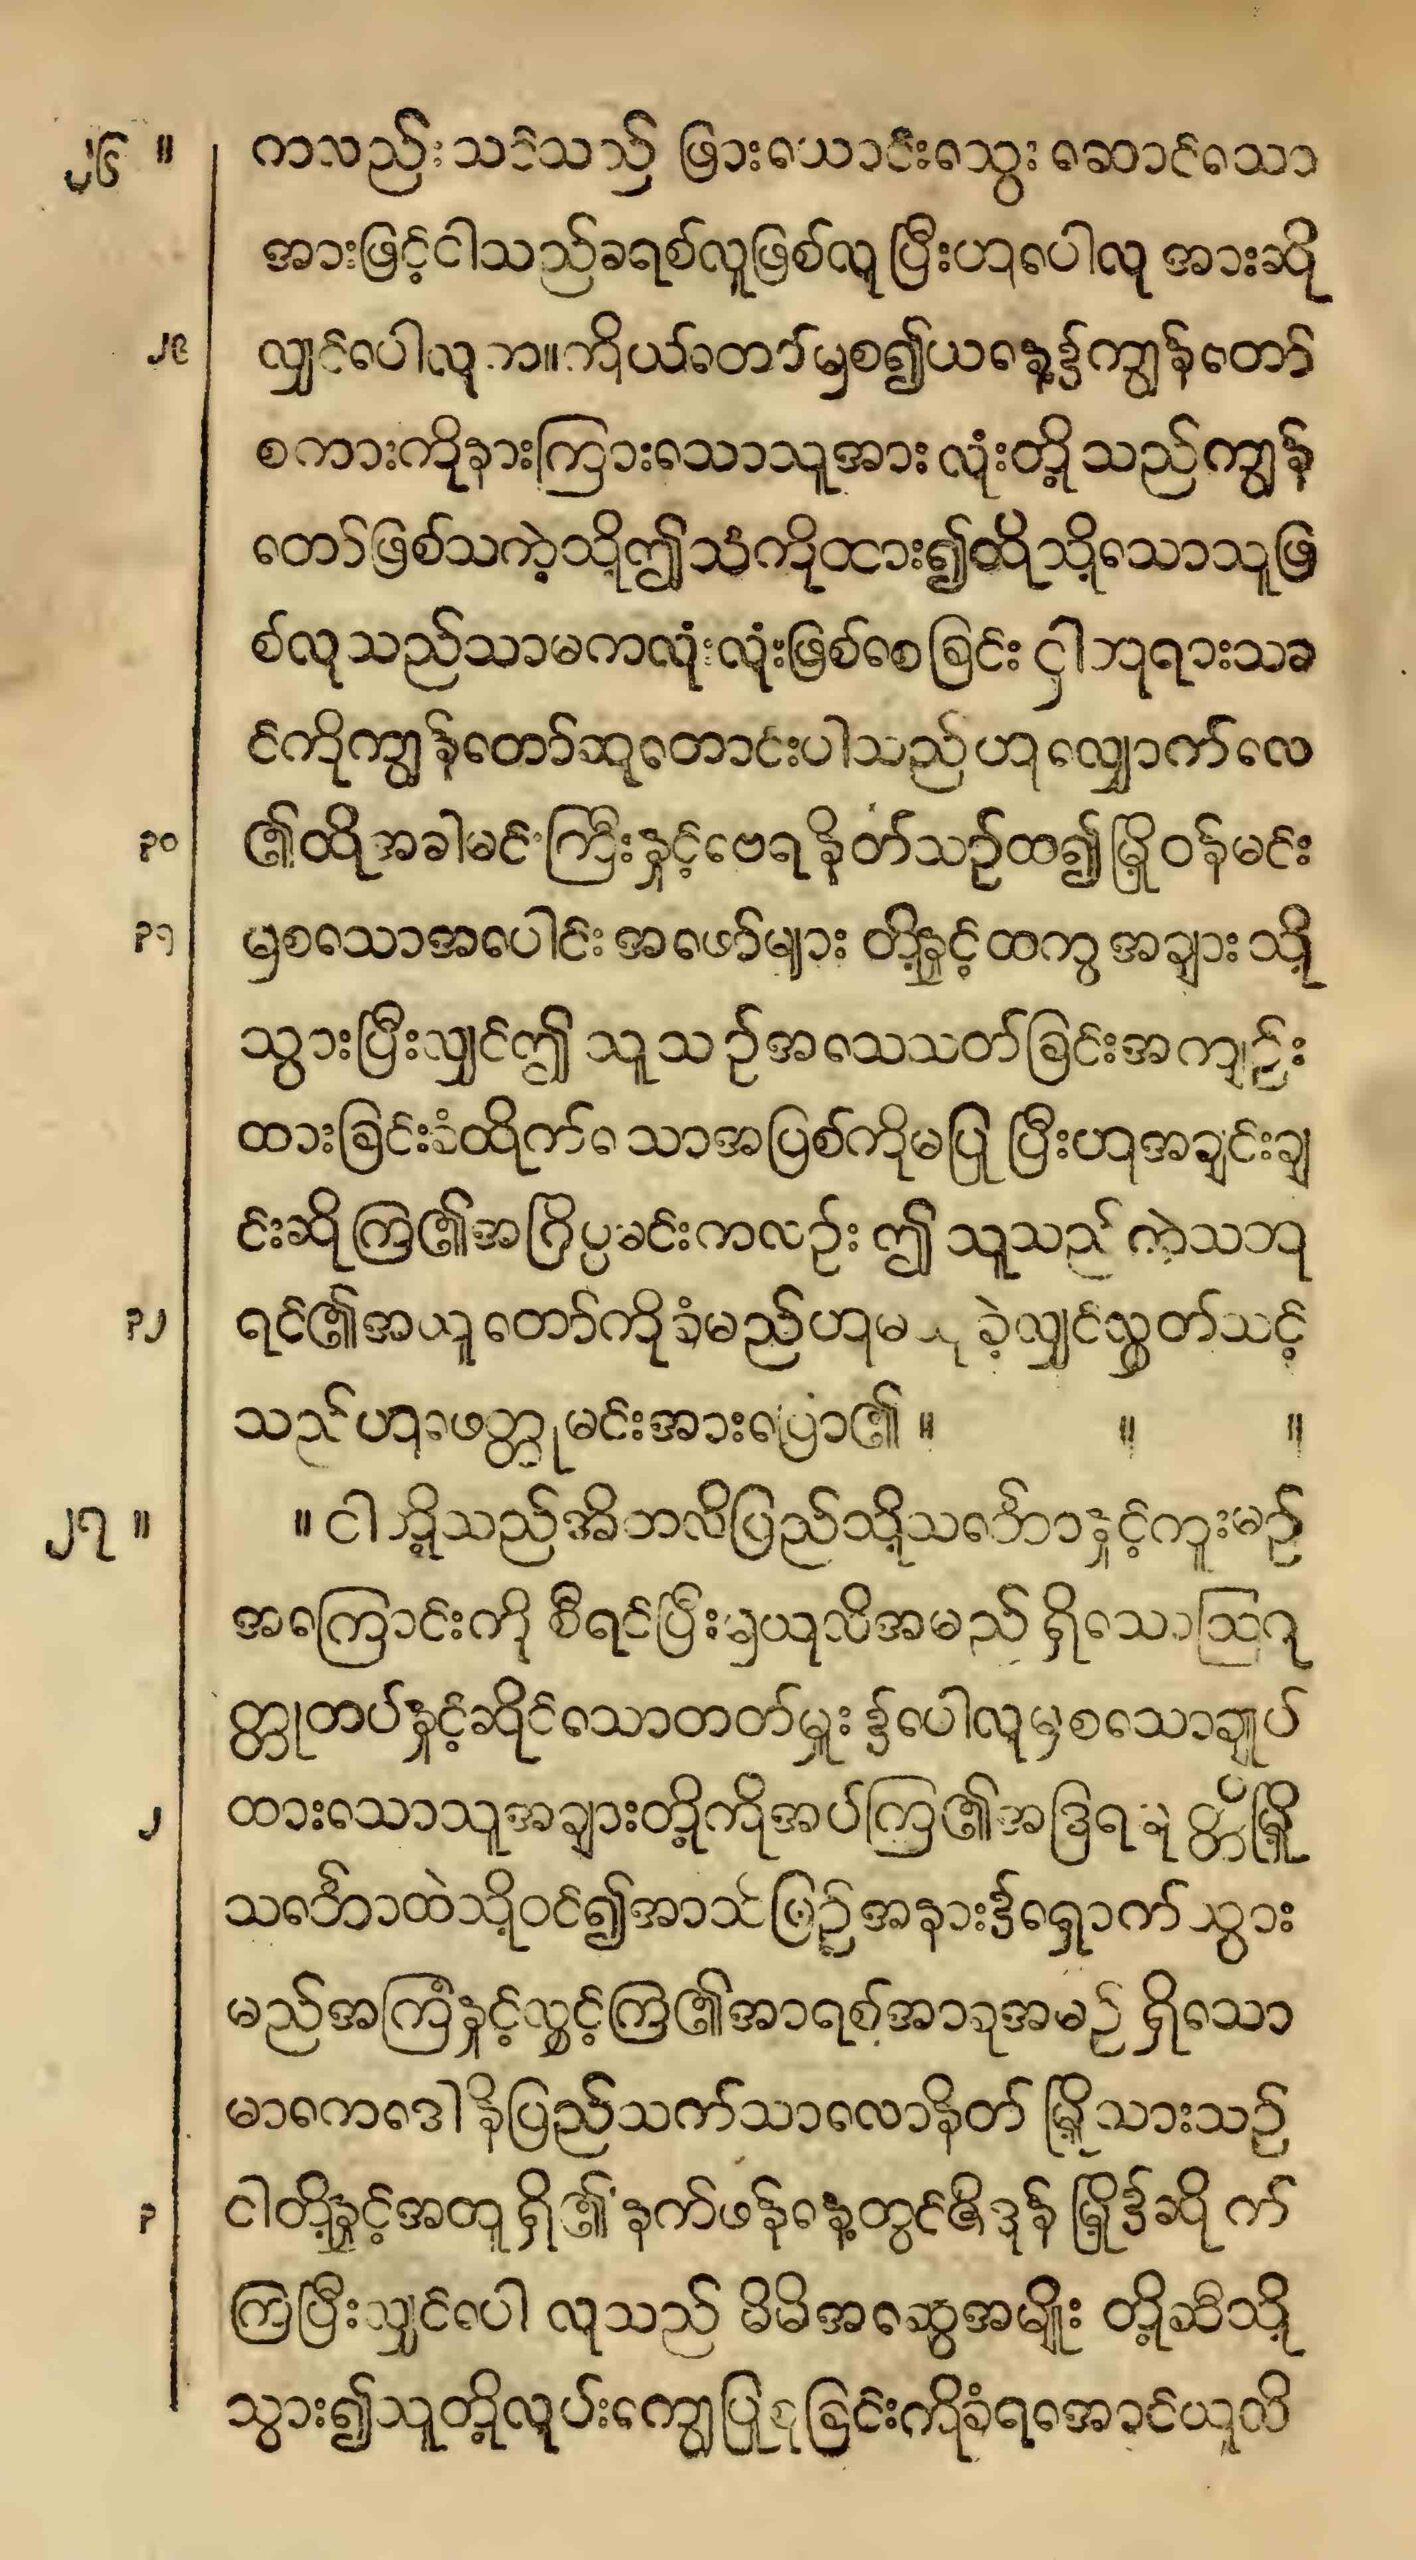 ၂၆ ။ ကလည်းသင်သည် ဖြားယောင်းသွေးဆောင်သော
အားဖြင့်ငါသည်ခရစ်လူဖြစ်လုပြီးဟုပေါလု အားဆို
၂၉ လျှင်ပေါလုက။ ကိုယ်တော်မှစ၍ယနေ့၌ကျွန်တော်
စကားကိုနားကြားသောသူအားလုံးတို့သည်ကျွန်
တော်ဖြစ်သကဲ့သို့ဤသံကိုထား၍ထိုသို့သောသူဖြ
စ်လုသည်သာမကလုံးလုံးဖြစ်စေခြင်းငှါဘုရားသခ
င်ကိုကျွန်တော်ဆုတောင်းပါသည်ဟုလျှောက်လေ
၃၀ ၏ထိုအခါမင်းကြီးနှင့်ဗေရနိတ်သဉ်ထ၍မြို့ဝန်မင်း
၃၁ မှစသောအပေါင်းအဖော်များ တို့နှင့်ထကွ အချားသို့
သွားပြီးလျှင်ဤ သူသဉ်အသေသတ်ခြင်းအကျဉ်း
ထားခြင်းခံထိုက်သောအပြစ်ကိုမပြု ပြီးဟုအချင်းချ
င်းဆိုကြ၏အဂြိပ္ပမင်းကလဉ်း ဤ သူသည် ကဲသဘု
၃၂ ရင်၏အယူတော်ကိုခံမည်ဟုမ ခဲ့လျှင်လွှတ်သင့်
သည်ဟုဖေတ္တုမင်းအားပြော၏ ။ ။ ။
၂၇ ။ ။ ငါတို့သည်အိတလိပြည်သို့သင်္ဘောနှင့်ကူးမဉ်
အကြောင်းကို စီရင်ပြီးမှယုလိအမည် ရှိသောဩဂု
တ္တုတပ်နှင့်ဆိုင်သောတတ်မှူး၌ပေါလုမှစသောချုပ်
၂ ထားသောသူအချားတို့ကိုအပ်ကြ၏အဒြရမုတ္တိမြို့
သင်္ဘောထဲသို့ဝင်၍အာသိပြဉ်အနား၌ရှောက်သွား
မည်အကြံနှင့်လွှင့်ကြ၏အာရစ်အာခုအမဉ် ရှိသော
မာကေဒေါနိပြည်သက်သာလောနိတ် မြို့သားသဉ်
၃ ငါတို့နှင့်အတူ ရှိ၏နက်ဖန်နေ့တွင်ဇိဒုန် မြို့၌ဆိုက်
ကြပြီးလျှင်ပေါ လုသည် မိမိအဆွေအမျိုး တို့ဆီသို့
သွား၍သူတို့လုပ်းကျွေပြုစုခြင်းကိုခံရအောင်ယုလိ